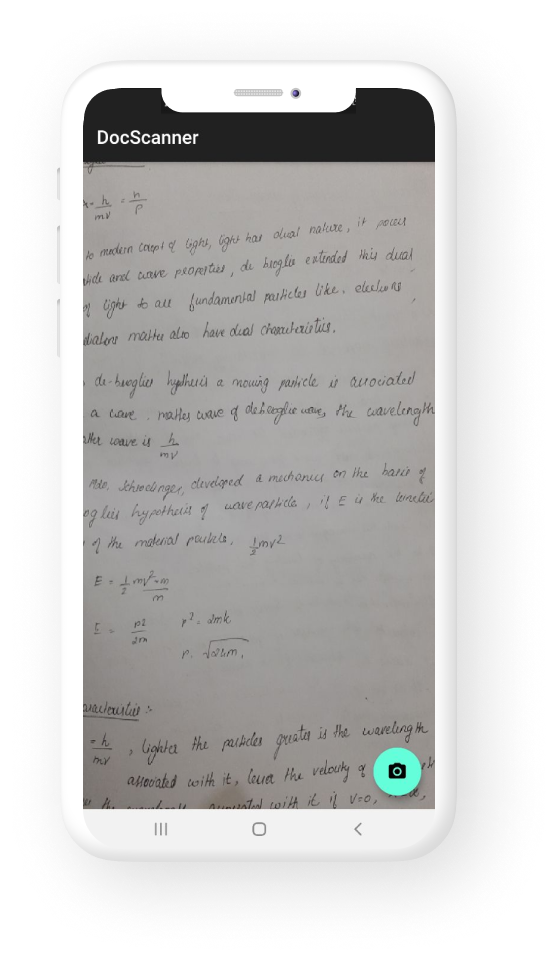 DocScanner
= h/mv = h/p
to modern concept of light, light has dual nature, it posses
and wave properties, de broglie extended this dual
of light to all fundamental particles like. electrons
matter also have dual characteristics.
de-broglies hypthesis a moving particle is associated
a wave. matter wave of debroglie wave, the wavelength
wave is h/mv
Schrodinger, developed a mechanics on the basis of
hypothesis of wave particle, if E is the kinetic
of the material particle, 1/2 mv2
E = 1/2 mv2 × m/m
E = p2/2m p2 = 2mk
p.
:-
= h/mv , lighter the particles greater is the wavelength
associated with it, lesser the velocity of
the associated with it if v=0,